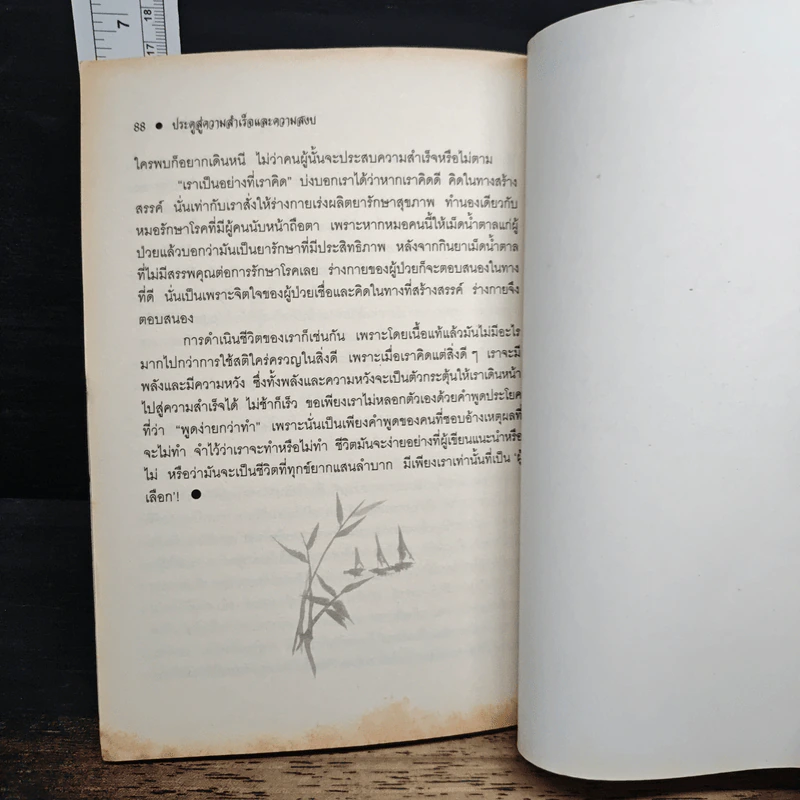 7
18
17
88 ● ประตูสู่ความสำเร็จและความสงบ
ใครพบก็อยากเดินหนี ไม่ว่าคนผู้นั้นจะประสบความสำเร็จหรือไม่ตาม
“เราเป็นอย่างที่เราคิด” บ่งบอกเราได้ว่าหากเราคิดดี คิดในทางสร้าง
สรรค์ นั่นเท่ากับเราสั่งให้ร่างกายเร่งผลิตยารักษาสุขภาพ ทำนองเดียวกับ
หมอรักษาโรคที่มีผู้คนนับหน้าถือตา เพราะหากหมอคนนี้ให้เม็ดน้ำตาลแก่ผู้
ป่วยแล้วบอกว่ามันเป็นยารักษาที่มีประสิทธิภาพ หลังจากกินยาเม็ดน้ำตาล
ที่ไม่มีสรรพคุณต่อการรักษาโรคเลย ร่างกายของผู้ป่วยก็จะตอบสนองในทาง
ที่ดี นั่นเป็นเพราะจิตใจของผู้ป่วยเชื่อและคิดในทางที่สร้างสรรค์ ร่างกายจึง
ตอบสนอง
การดำเนินชีวิตของเราก็เช่นกัน เพราะโดยเนื้อแท้แล้วมันไม่มีอะไร
มากไปกว่าการใช้สติใคร่ครวญในสิ่งดี เพราะเมื่อเราคิดแต่สิ่งดี ๆ เราจะมี
พลังและมีความหวัง ซึ่งทั้งพลังและความหวังจะเป็นตัวกระตุ้นให้เราเดินหน้า
ไปสู่ความสำเร็จได้ ไม่ช้าก็เร็ว ขอเพียงเราไม่หลอกตัวเองด้วยคำพูดประโยค
ที่ว่า “พูดง่ายกว่าทำ” เพราะนั่นเป็นเพียงคำพูดของคนที่ชอบอ้างเหตุผลที่
จะไม่ทำ จำไว้ว่าเราจะทำหรือไม่ทำ ชีวิตมันจะง่ายอย่างที่ผู้เขียนแนะนำหรือ
ไม่ หรือว่ามันจะเป็นชีวิตที่ทุกข์ยากแสนลำบาก มีเพียงเราเท่านั้นที่เป็น ‘ผู้
เลือก’! ●